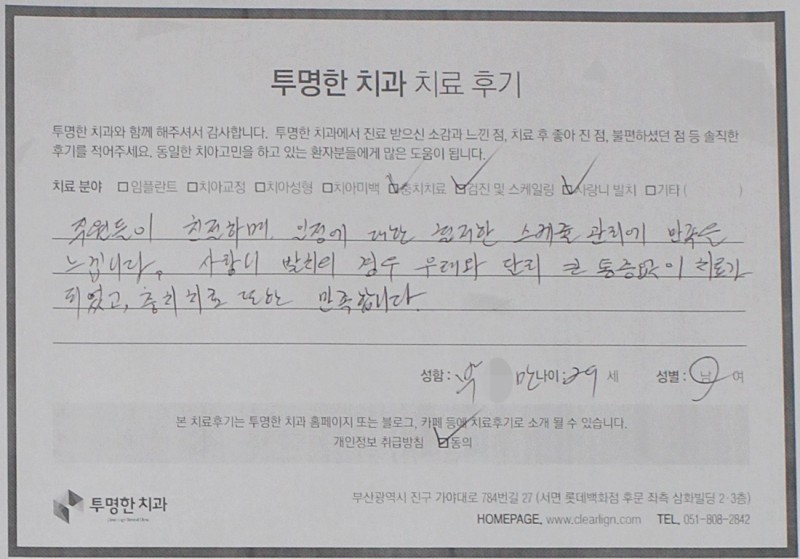 투명한 치과 치료 후기
투명한 치과와 함께 해주셔서 감사합니다. 투명한 치과에서 진료 받으신 소감과 느낀 점, 치료 후 좋아 진 점, 불편하셨던 점 등 솔직한
후기를 적어주세요. 동일한 치아고민을 하고 있는 환자분들에게 많은 도움이 됩니다.
치료 분야 □임플란트 □치아교정 □치아성형 □치아미백 ☑충치치료 ☑검진 및 스케일링 ☑사랑니 발치 □기타 ( )
직원들이 친절하며, 일정에 대한 철저한 스케쥴 관리에 만족을
느낍니다. 사랑니 발치의 경우 우려와 달리 큰 통증없이 치료가
되었고, 충치치료 또한 만족합니다.
성함 : 만나이 : 29 세 성별 : 남 여
본 치료후기는 투명한 치과 홈페이지 또는 블로그, 카페 등에 치료후기로 소개 될 수 있습니다.
개인정보 취급방침 ☑동의
투명한 치과
부산광역시 진구 가야대로 784번길 27 (서면 롯데백화점 후문 좌측 삼화빌딩 2·3층)
HOMEPAGE. www.clearlign.com TEL. 051-808-2842